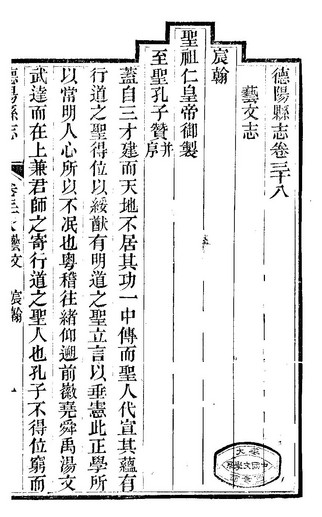 德陽縣志卷三十八
藝文志
宸翰
聖祖仁皇帝御製
至聖孔子贊并序
蓋自三才建而天地不居其功一中傳而聖人代宣其蘊有
行道之聖得位以綏猷有明道之聖立言以垂憲此正學所
以當明人心所以不泯也粵稽往緒仰遡前徽堯舜禹湯文
武達而在上兼君師之寄行道之聖人也孔子不得位窮而
德陽縣志 卷三十八藝文 宸翰 一